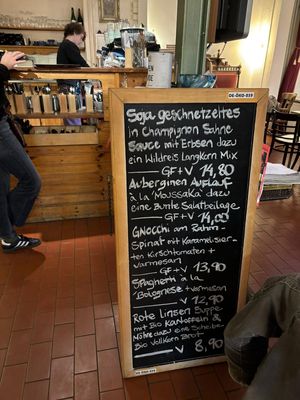 DE-ÖKO-039
Soja geschnetzeltes
in Champignon Sahne
Sauce mit Erbsen dazu
ein Wildreis Langkorn Mix
GF+V 14,80
Auberginen Auflauf
à la "Moussaka" dazu
eine Bunte Salatbeilage
GF+V 14,00
GNOCCHi am Rahm-
Spinat mit Karamelisier-
ten Kirschtomaten +
Varmesan
GF+V 13,90
Spaghetti à la
Bolognese + Varmesan
V 12,90
Rote Linsen Suppe
mit Bio Kartoffeln &
Möhre dazu eine Scheibe
Bio Vollkorn Brot
V 8,90